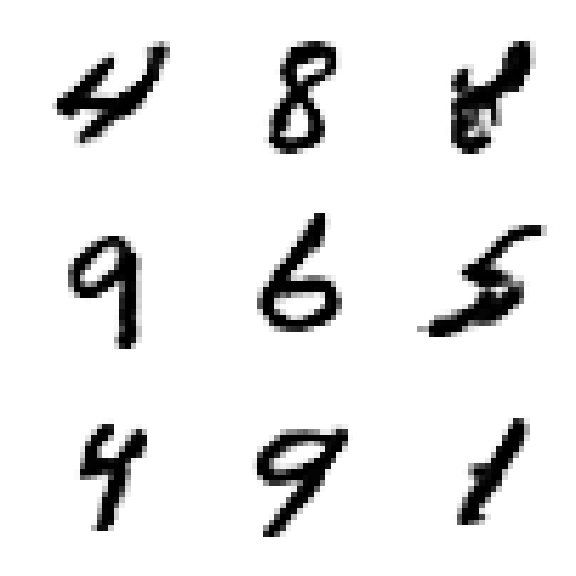 4 8 8
9 6 5
4 9 1